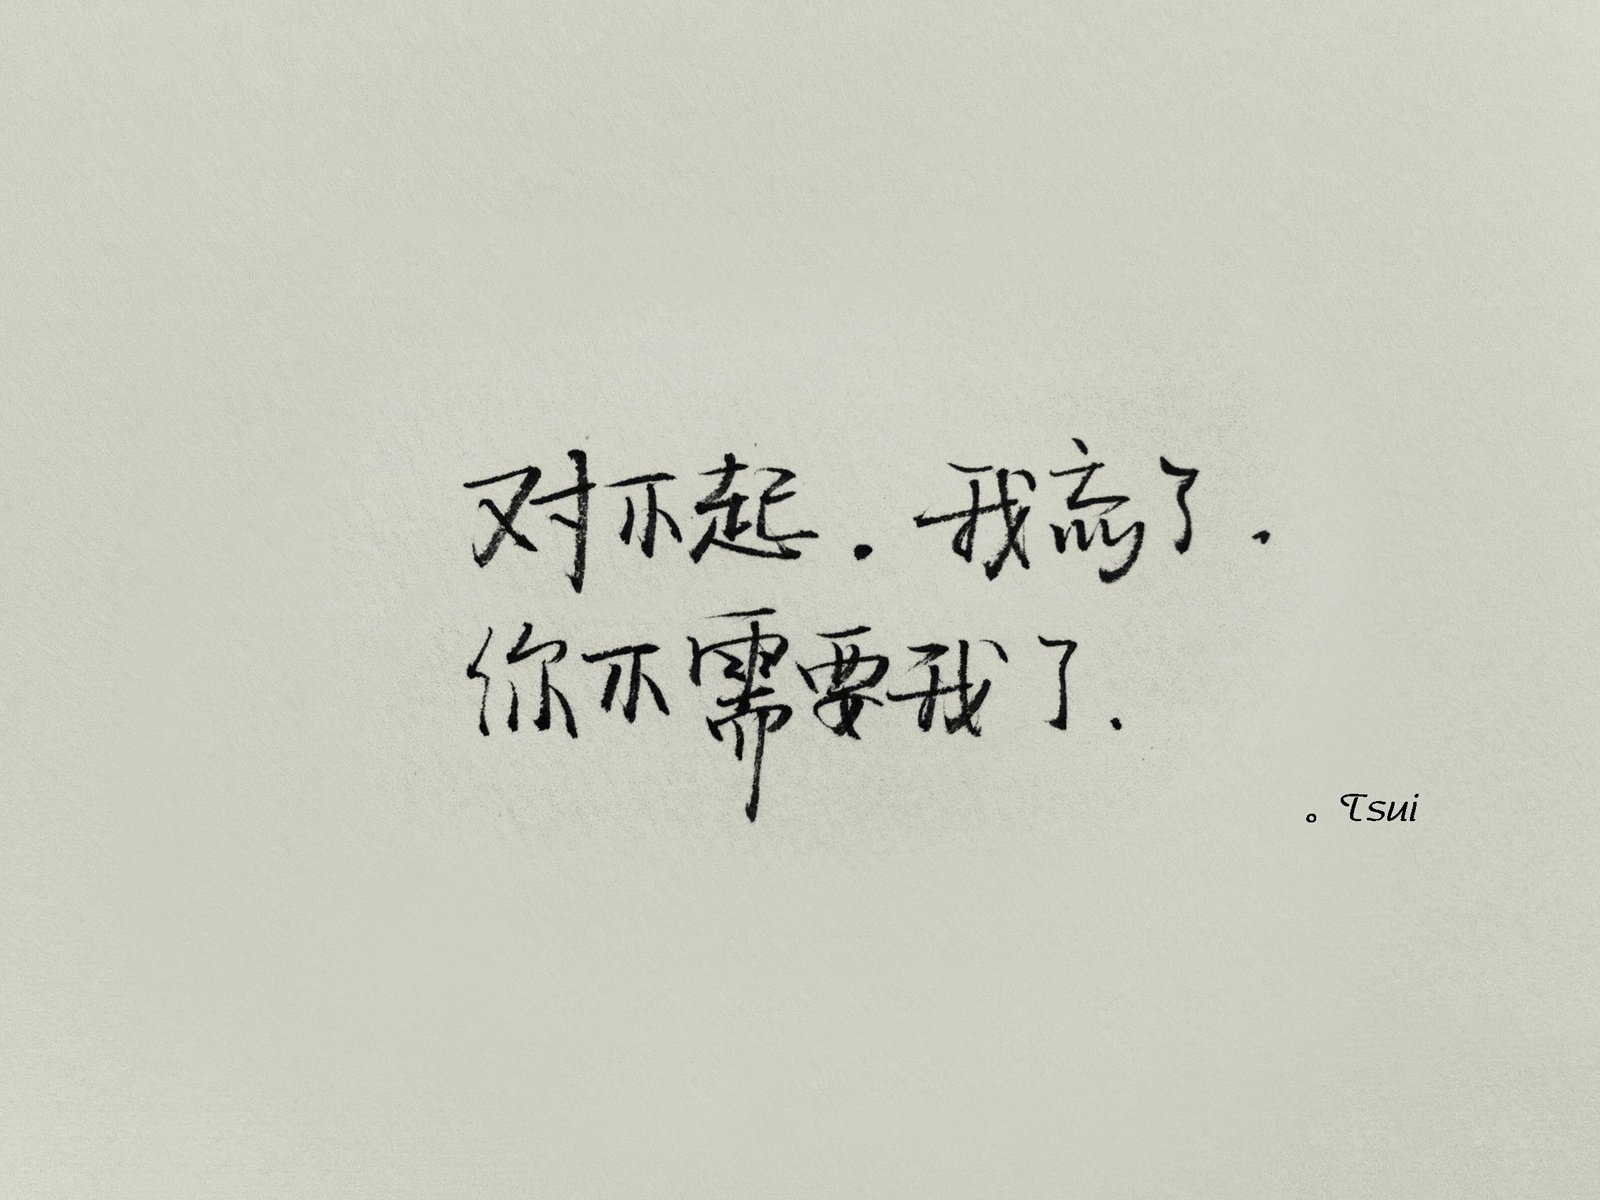 对不起．我忘了．
你不需要我了．
。Tsui